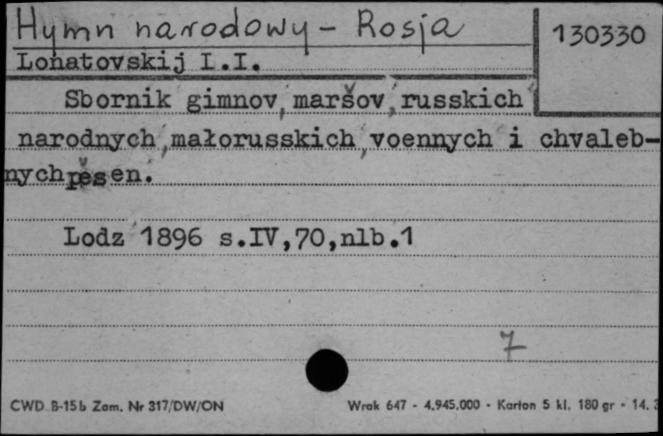 Hymn narodowy - Rosja
130330
Lonatovskij I.I.
Sbornik gimnov, maršov, russkich
narodnych, małorusskich, voennych i chvaleb-
nych pěsen.
Lodz 1896 s.IV,70,nlb.1
7
CWD B-15b Zam. Nr 317/DW/ON
Wrak 647 - 4.945.000 - Karton 5 kl. 180 gr - 14.